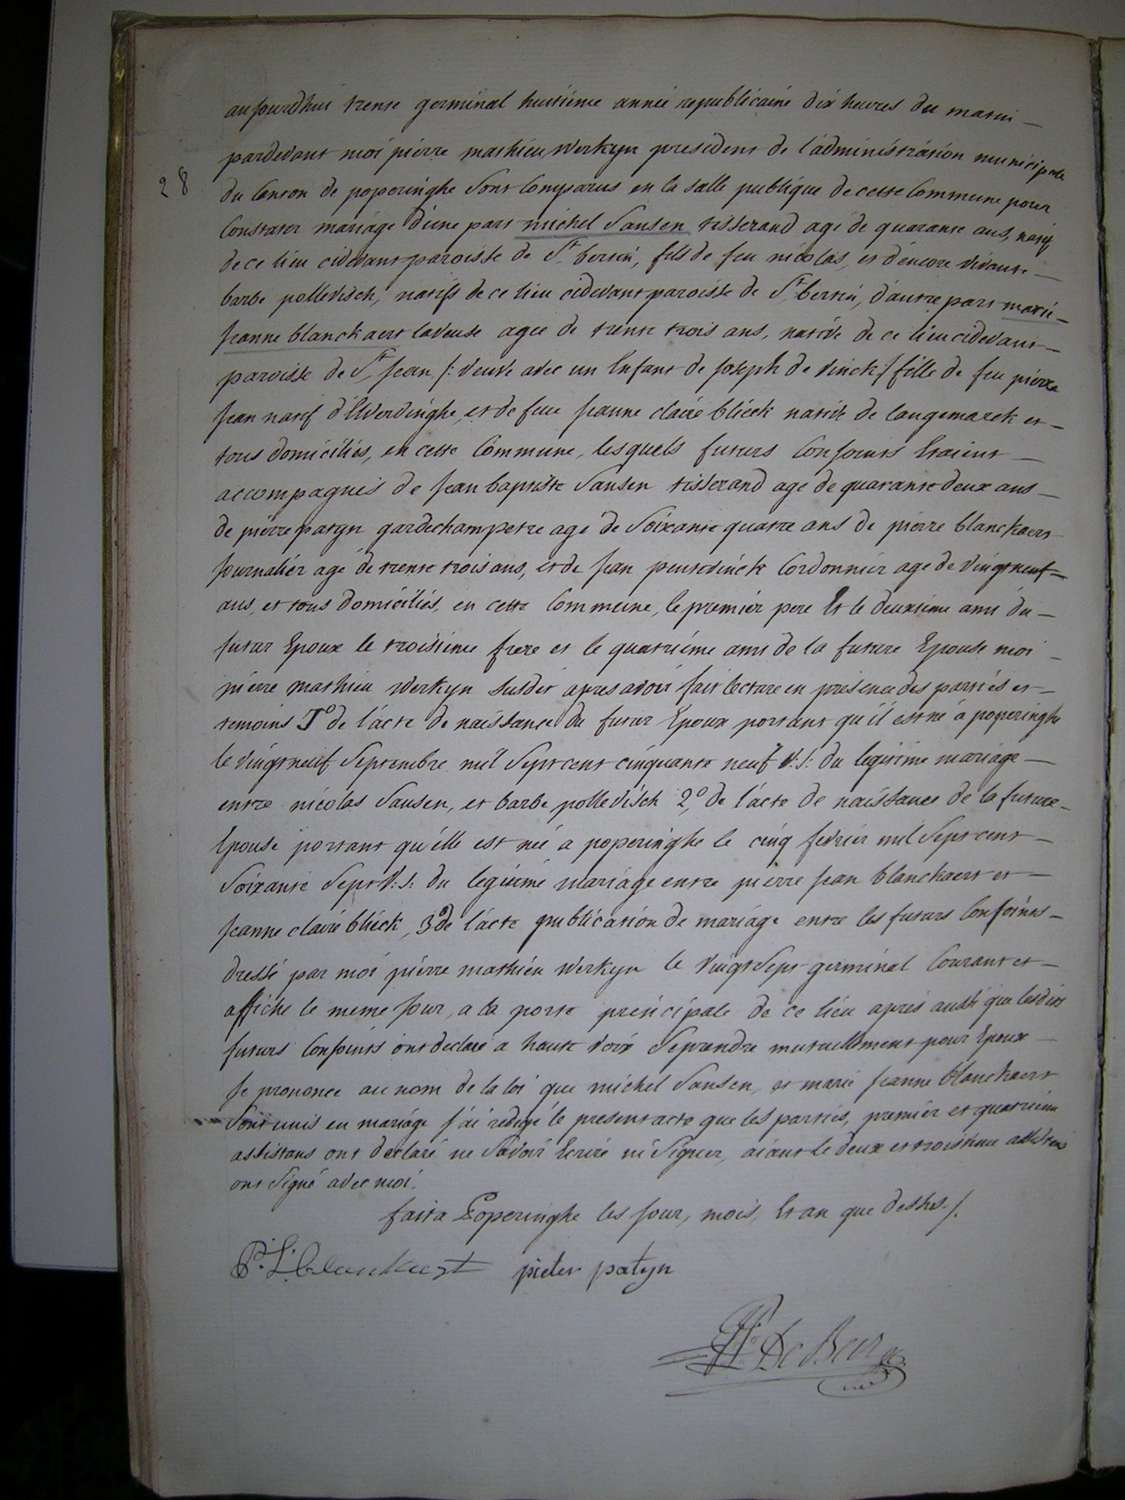 aujourd'hui trente germinal huitieme année republicaine dix heures du matin —
pardevant moi pierre mathieu Werkyn president de l'administration municipale
28
du Canton de poperinghe Sont Comparus en la salle publique de cette Commune pour
Constater mariage d'une part michel Sansen tisserand agé de quarante ans, natif
de ce lieu cidevant paroisse de St. bertin, fils de feu nicolas, et d'encore vivante —
barbe pollevisch, natifs de ce lieu cidevant paroisse de St. bertin, d'autre part marie —
jeanne blanckaert laveuse agee de trente trois ans, native de ce lieu cidevant —
paroisse de St. Jean /: veuve avec un Enfant de joseph de vinck / fille de feu pierre
jean natif d'Elverdinghe, et de feue jeanne claire blieck native de langemarck et —
tous domiciliés, en cette Commune, lesquels futurs Conjoints Etaient —
accompagnés de jean baptiste Sansen tisserand age de quarante deux ans —
de pierre patyn gardechampetre age de Soixante quatre ans de pierre blanckaert
journalier agé de trente trois ans, et de jean Cordonnier age de vingt neuf —
ans, et tous domiciliés, en cette Commune, le premier pere Et le deuxieme ami du —
futur Epoux le troisieme frere et le quatrieme ami de la future Epouse moi —
pierre mathieu Werkyn Susdit apres avoir fait lecture en presence des parties et —
temoins 1o de l'acte de naissance du futur Epoux portant qu'il est né a poperinghe
le vingt neuf Septembre mil Sept cent cinquante neuf V:S: du legitime mariage —
entre nicolas Sansen, et barbe pollevisch 2.o de l'acte de naissance de la future —
Epouse portant qu'elle est née a poperinghe le cinq fevrier mil Sept cent —
Soixante Sept V:S: du legitime mariage entre pierre jean blanckaert et —
jeanne claire blieck, 3o de l'acte publication de mariage entre les futurs Conjoints —
dressé par moi pierre mathieu Werkyn le vingt Sept germinal Courant et —
affiché le meme jour, a la porte principale de ce lieu apres aussi que lesdits
futurs Conjoints ont declaré a haute voix Se prendre mutuellement pour Epoux —
je prononce au nom de la loi que michel Sansen, et marie jeanne blanckaert
Sont unis en mariage j'ai redigé le present acte que les parties, premier et quatrieme
assistans ont declaré ne Savoir Ecrire ni Signer, aiant le deux et troisieme assistans
ont Signé avec moi.
fait a Poperinghe les jour, mois, Et an que dessus /.
P. J. blanckaert pieter patyn
De Beir